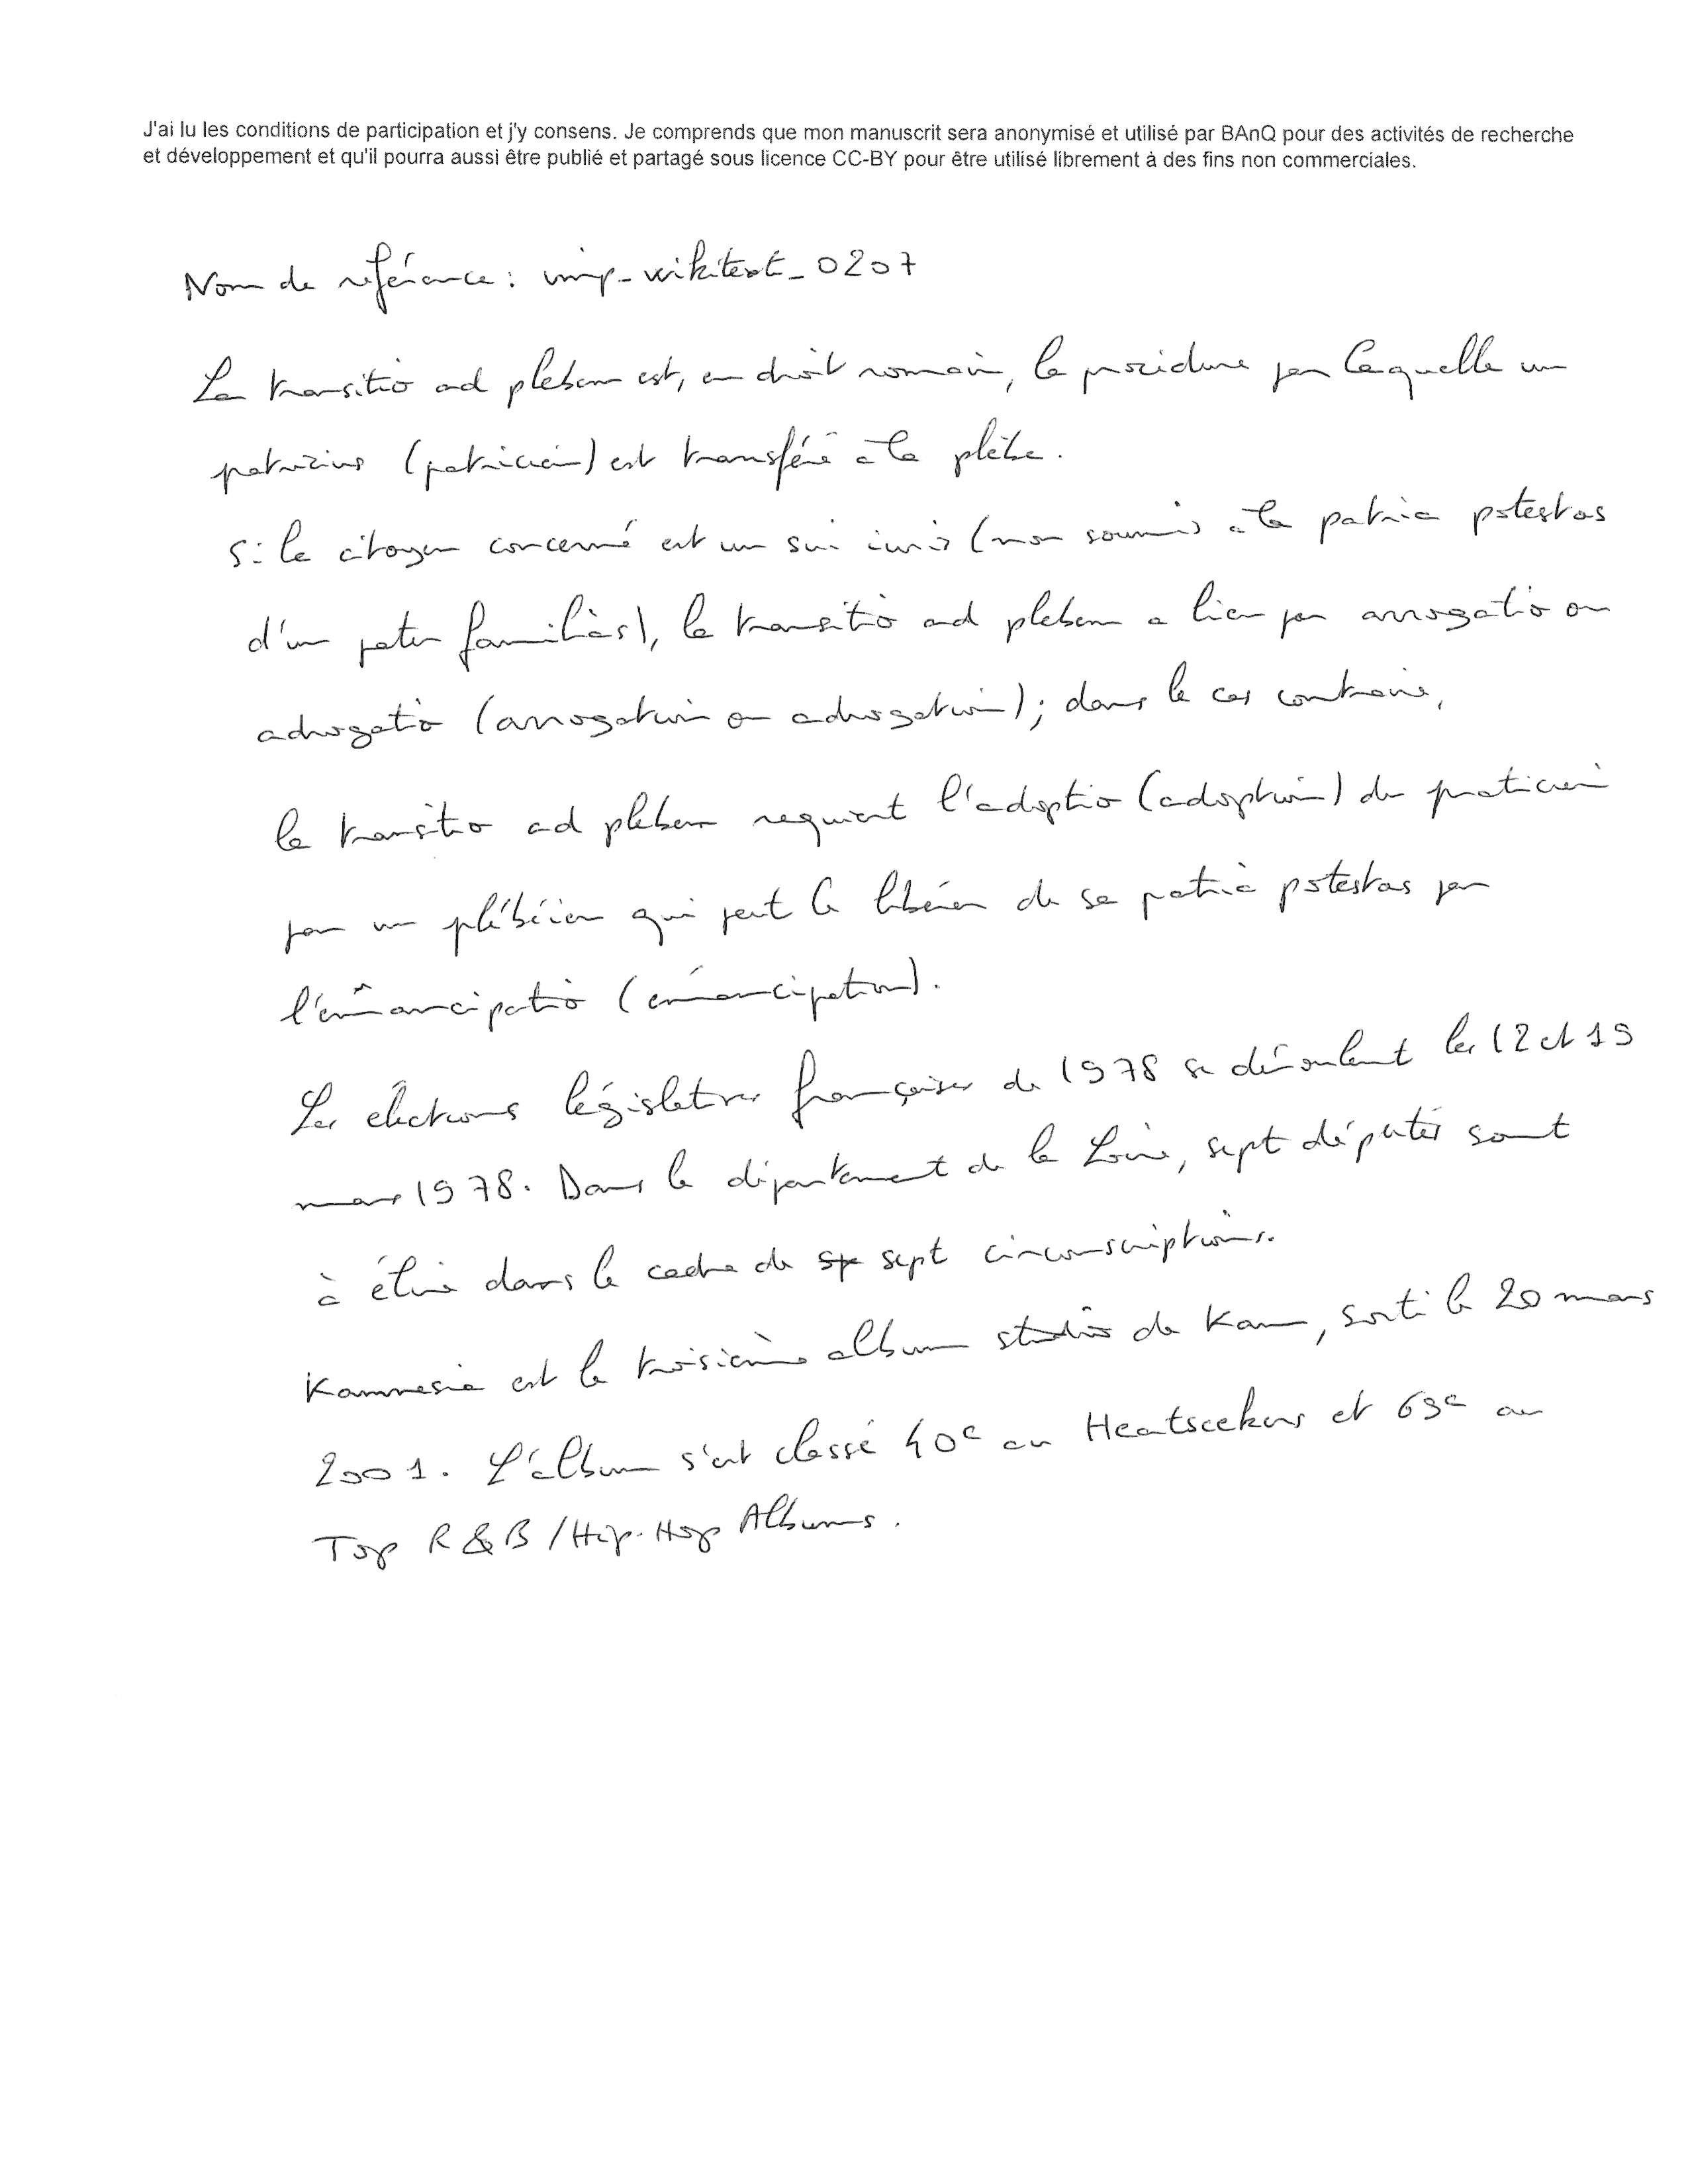 J'ai lu les conditions de participation et j'y consens. Je comprends que mon manuscrit sera anonymisé et utilisé par BAnQ pour des activités de recherche
et développement et qu'il pourra aussi être publié et partagé sous licence CC-BY pour être utilisé librement à des fins non commerciales.
Nom de référence : vmp-wikitext_0207
La transitio ad plebem est, en droit romain, la procédure par laquelle un
patricius (patricien) est transféré à la plèbe.
Si le citoyen concerné est un sui iuris (non soumis à la patria potestas
d'un pater familias), la transitio ad plebem a lieu par arrogatio ou
adrogatio (arrogation ou adrogation); dans le cas contraire,
la transitio ad plebem requiert l'adoptio (adoption) du praticien
par un plébéien qui peut le libérer de sa patria potestas par
l'emancipatio (émancipation).
Les élections législatives françaises de 1978 se déroulent les 12 et 19
mars 1978. Dans le département de la Loire, sept députés sont
à élire dans le cadre de sept circonscriptions.
Kamnesia est le troisième album studio de Kam, sorti le 20 mars
2001. L'album s'est classé 40e au Heatseekers et 63e au
Top R&B/Hip-Hop Albums.